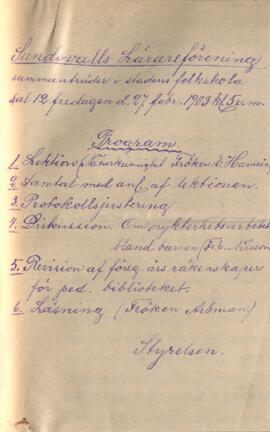 Sundsvalls Lärareförening
sammanträder i stadens folkskola
sal 12 fredagen d. 27 febr. 1903 kl 5 e.m.
Program.
1. Lektion (Naturkunnighet Fröken E.
2. Samtal med anl. af lektionen.
3. Protokollsjustering
4. Diskussion. Om nykterhetsarbetet
bland barnen (Fr. E. Nilsson
5. Revision af föreg. års räkenskaper
för ped. biblioteket.
6. Läsning (Fröken Arbman)
Styrelsen.